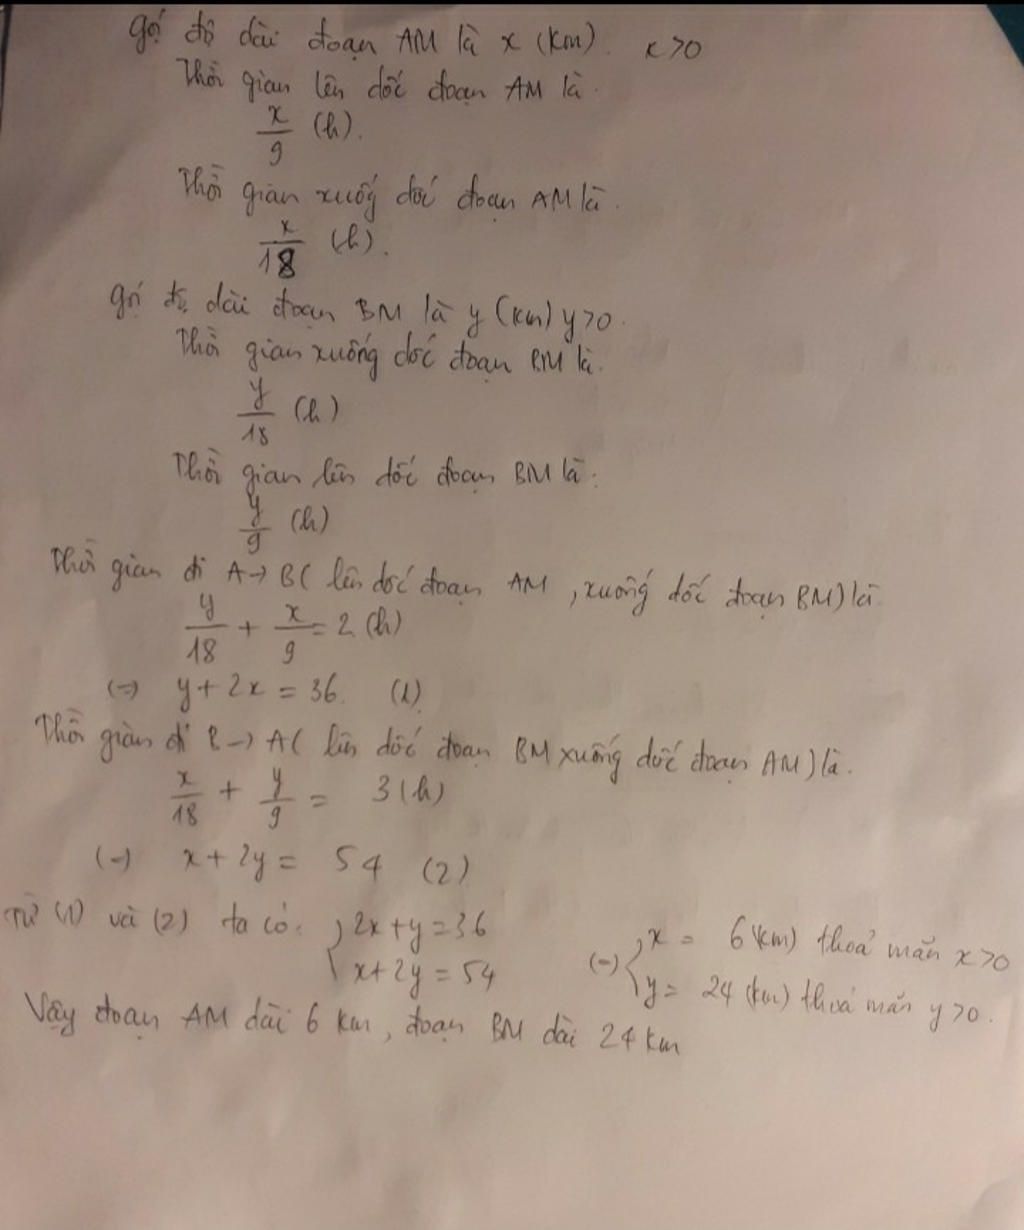 Gọi độ dài đoạn AM là x (km). x>0
Thời gian lên dốc đoạn AM là.
x/9 (h).
Thời gian xuống dốc đoạn AM là.
x/18 (h).
Gọi độ dài đoạn BM là y (km) y>0.
Thời gian xuống dốc đoạn BM là.
y/18 (h)
Thời gian lên dốc đoạn BM là:
y/9 (h)
Thời gian đi A→B( lên dốc đoạn AM, xuống dốc đoạn BM) là
y/18 + x/9 = 2 (h)
(=) y + 2x = 36. (1)
Thời gian đi B→A( lên dốc đoạn BM xuống dốc đoạn AM) là.
x/18 + y/9 = 3 (h)
(=) x + 2y = 54 (2)
Từ (1) và (2) ta có: { 2x+y=36 (=) { x = 6 (km) thoả mãn x>0
x+2y=54 y = 24 (km) thoả mãn y>0.
Vậy đoạn AM dài 6 km, đoạn BM dài 24 km